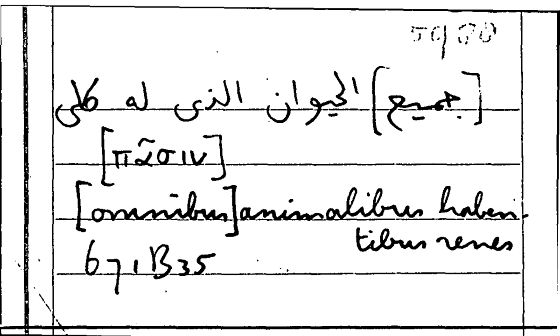 [جميع] الحيوان الذى له كلى
[πᾶσιν]
[omnibus] animalibus haben-
tibus renes
671B35